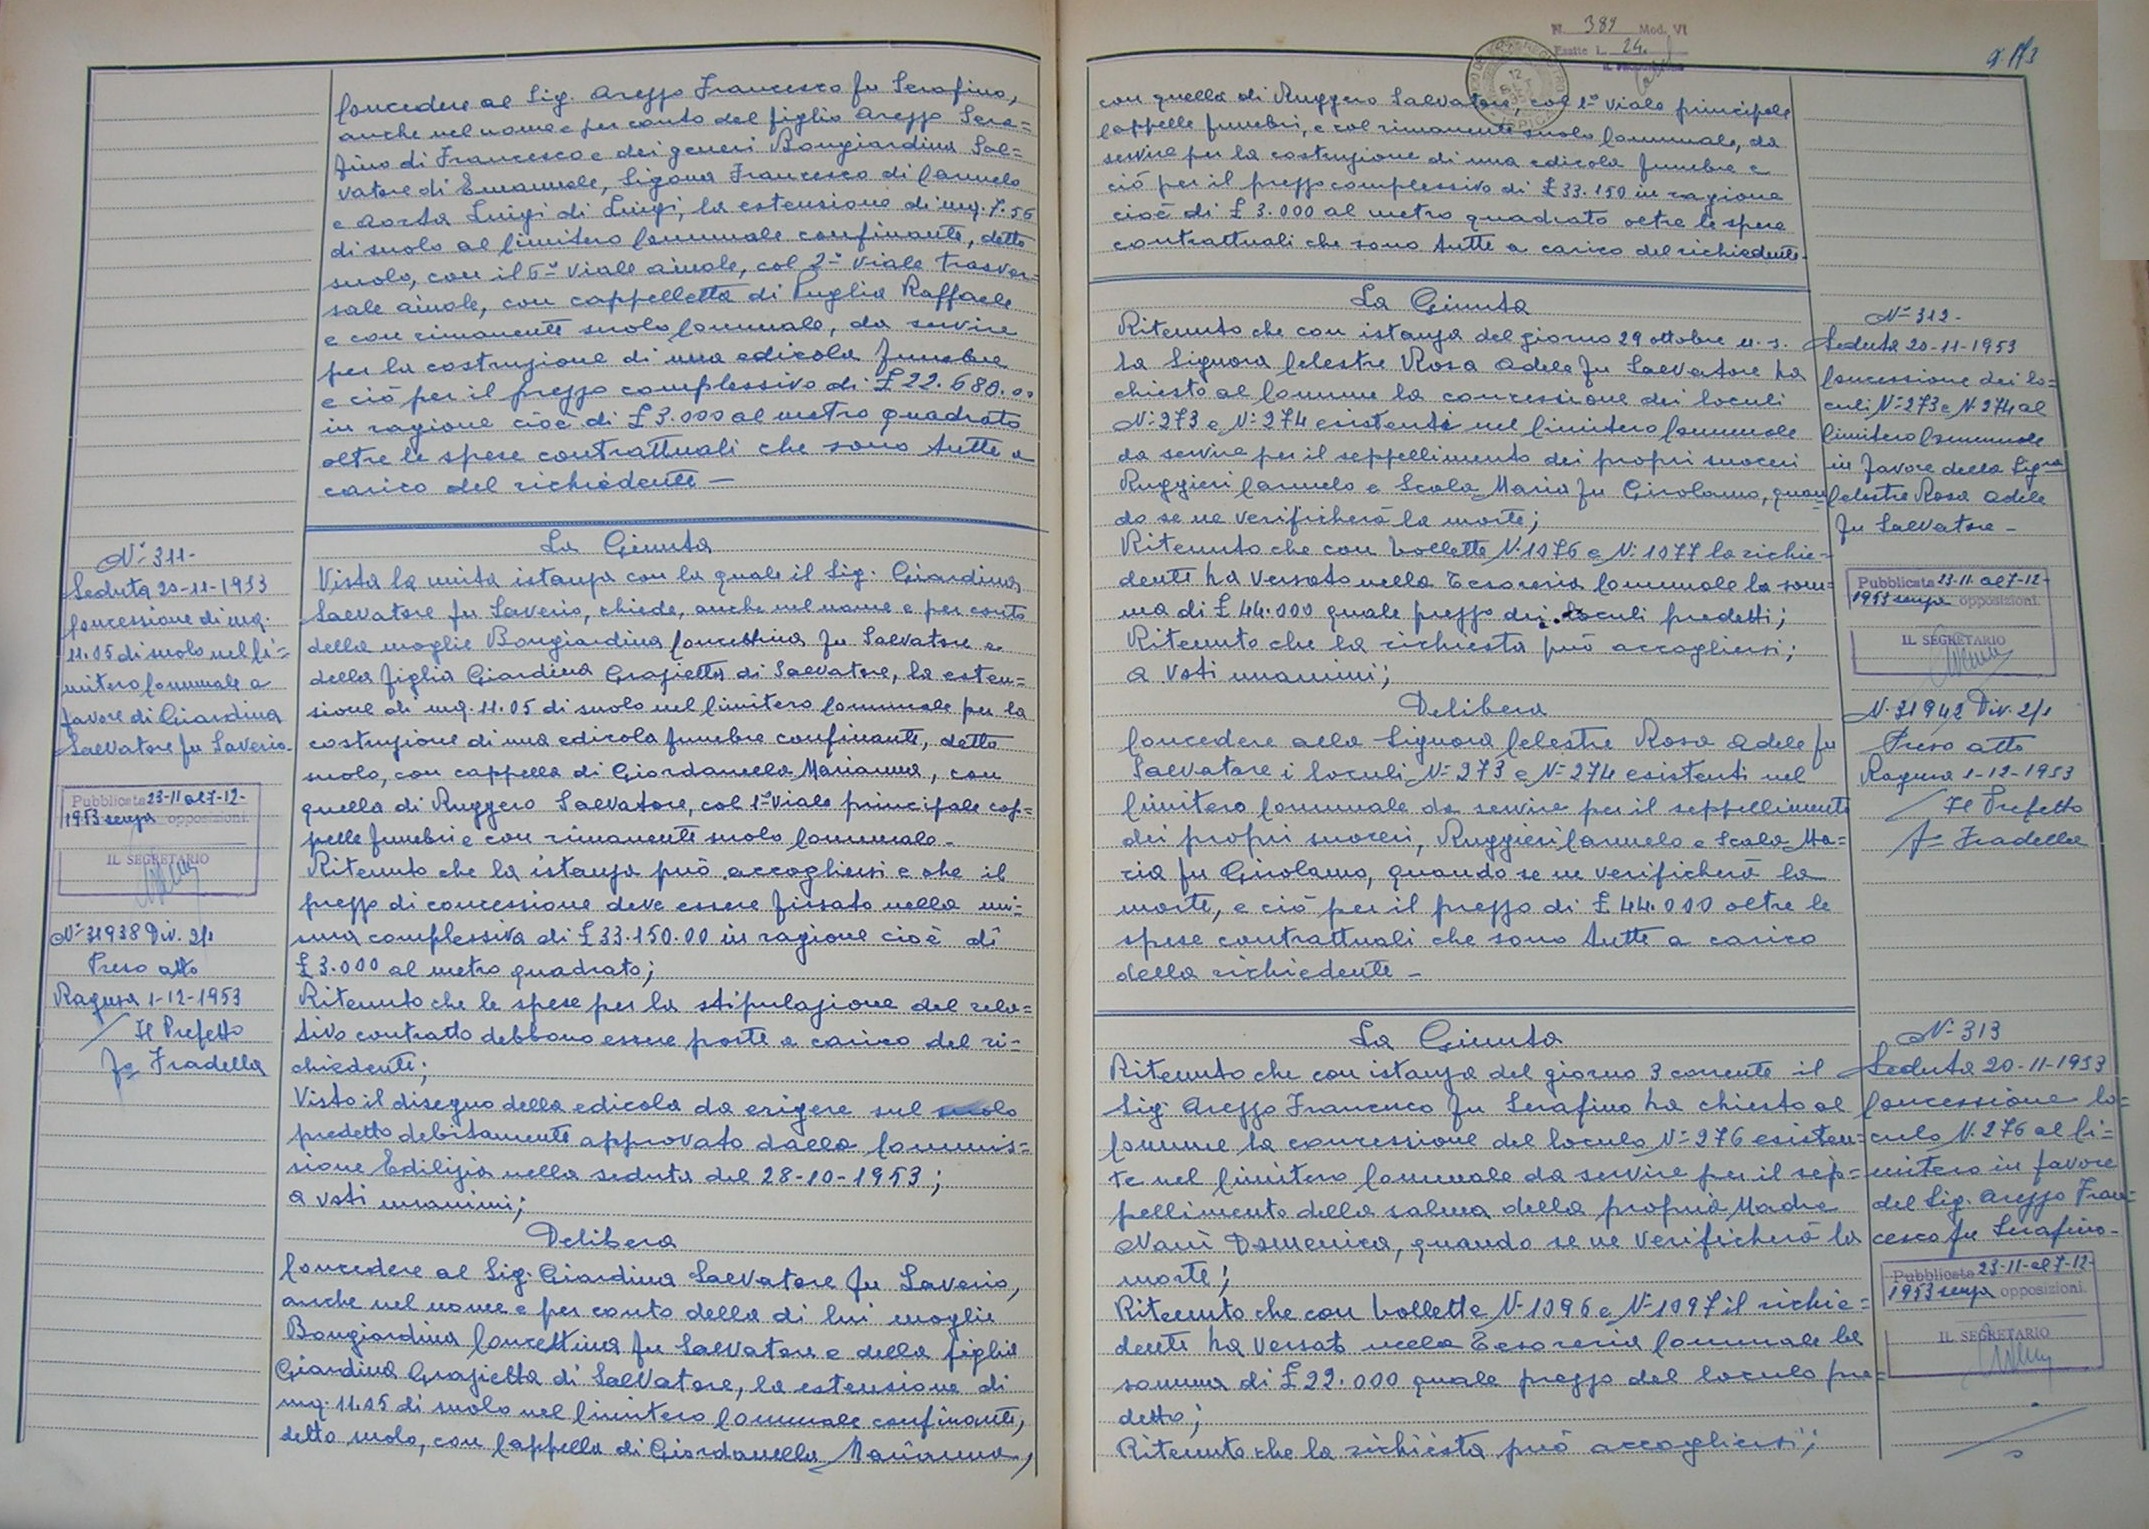 Concedere al Sig. Arezzo Francesco fu Serafino,
anche nel nome e per conto del figlio Arezzo Sera=
fino di Francesco e dei generi Bongiardina Sal=
vatore di Emanuele, Sigona Francesco di Carmelo
e Aorta Luigi di Luigi, la estensione di mq. 7.56
di suolo al Cimitero Comunale confinante, detto
suolo, con il 6° viale aiuole, col 2° viale trasver=
sale aiuole, con cappelletta di Puglia Raffaele
e con rimanente suolo Comunale, da servire
per la costruzione di una edicola funebre
e ciò per il prezzo complessivo di £ 22.680.00
in ragione cioè di £ 3.000 al metro quadrato
oltre le spese contrattuali che sono tutte a
carico del richiedente —
N° 311-
Seduta 20-11-1953
Concessione di mq.
11.05 di suolo nel Ci=
mitero Comunale a
favore di Giardina
Salvatore fu Saverio.
Pubblicata 23-11 al 7-12-
1953 senza opposizioni.
IL SEGRETARIO
N° 31938 Div. 2/1
Preso atto
Ragusa 1-12-1953
Il Prefetto
Fradella
La Giunta
Vista la unita istanza con la quale il Sig. Giardina
Salvatore fu Saverio, chiede, anche nel nome e per conto
della moglie Bongiardina Concettina fu Salvatore e
della figlia Giardina Grazietta di Salvatore, la esten=
sione di mq. 11.05 di suolo nel Cimitero Comunale per la
costruzione di una edicola funebre confinante, detto
suolo, con cappella di Giordanella Marianna, con
quella di Ruggero Salvatore, col 1° viale principale cap=
pelle funebri e con rimanente suolo Comunale.
Ritenuto che la istanza può accogliersi e che il
prezzo di concessione deve essere fissato nella mi=
sura complessiva di £ 33.150.00 in ragione cioè di
£ 3.000 al metro quadrato;
Ritenuto che le spese per la stipulazione del rela=
tivo contratto debbono essere poste a carico del ri=
chiedente;
Visto il disegno della edicola da erigere sul suolo
predetto debitamente approvato dalla Commis=
sione Edilizia nella seduta del 28-10-1953;
a voti unanimi;
Delibera
Concedere al Sig. Giardina Salvatore fu Saverio,
anche nel nome e per conto della di lui moglie
Bongiardina Concettina fu Salvatore e della figlia
Giardina Grazietta di Salvatore, la estensione di
mq. 11.05 di suolo nel Cimitero Comunale confinante,
detto suolo, con Cappella di Giordanella Marianna,
N. 389 Mod. VI
Esatte L. 24.
ISPICA
con quella di Ruggero Salvatore, col 1° viale principale
Cappelle funebri, e col rimanente suolo Comunale, da
servire per la costruzione di una edicola funebre e
ciò per il prezzo complessivo di £ 33.150 in ragione
cioè di £ 3.000 al metro quadrato oltre le spese
contrattuali che sono tutte a carico del richiedente.
La Giunta
Ritenuto che con istanza del giorno 29 ottobre u. s.
la Signora Celestre Rosa Adele fu Salvatore ha
chiesto al Comune la concessione dei loculi
N° 273 e N° 274 esistenti nel Cimitero Comunale
da servire per il seppellimento dei propri suoceri
Ruggieri Carmelo e Scala Maria fu Girolamo, quan=
do se ne verificherà la morte;
Ritenuto che con bollette N. 1076 e N. 1077 la richie=
dente ha versato nella Tesoreria Comunale la som=
ma di £ 44.000 quale prezzo dei loculi predetti;
Ritenuto che la richiesta può accogliersi;
a voti unanimi;
Delibera
Concedere alla Signora Celestre Rosa Adele fu
Salvatore i loculi N° 273 e N° 274 esistenti nel
Cimitero Comunale da servire per il seppellimento
dei propri suoceri, Ruggieri Carmelo e Scala Ma=
ria fu Girolamo, quando se ne verificherà la
morte, e ciò per il prezzo di £ 44.000 oltre le
spese contrattuali che sono tutte a carico
della richiedente -
N° 312-
Seduta 20-11-1953
Concessione dei lo=
culi N° 273 e N. 274 al
Cimitero Comunale
in favore della Sigra
Celestre Rosa Adele
fu Salvatore -
Pubblicata 23-11 al 7-12-
1953 senza opposizioni.
IL SEGRETARIO
N. 31942 Div. 2/1
Preso atto
Ragusa 1-12-1953
Il Prefetto
Fradella
La Giunta
Ritenuto che con istanza del giorno 3 corrente il
Sig. Arezzo Francesco fu Serafino ha chiesto al
Comune la concessione del loculo N° 276 esisten=
te nel Cimitero Comunale da servire per il sep=
pellimento della salma della propria Madre
Nanì Domenica, quando se ne verificherà la
morte;
Ritenuto che con bollette N. 1096 e N. 1097 il richie=
dente ha versato nella Tesoreria Comunale la
somma di £ 22.000 quale prezzo del loculo pre=
detto;
Ritenuto che la richiesta può accogliersi;
N° 313
Seduta 20-11-1953
Concessione lo=
culo N. 276 al Ci=
mitero in favore
del Sig. Arezzo Fran=
cesco fu Serafino-
Pubblicata 23-11-al 7-12-
1953 senza opposizioni.
IL SEGRETARIO